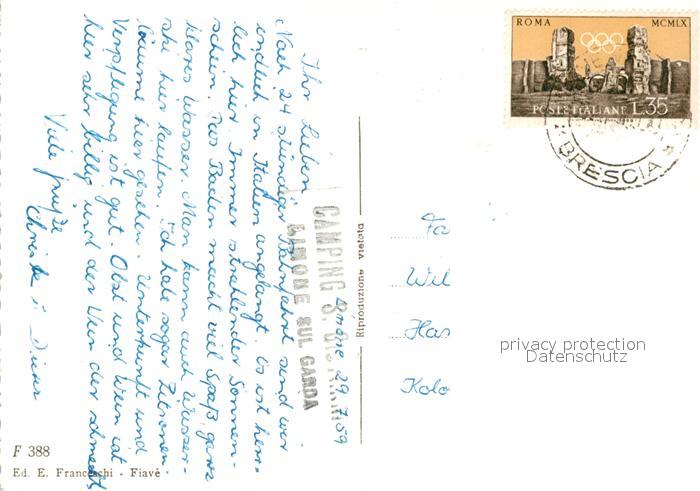 Limone 29.7.59
Ihr Lieben
Nach 24 stündiger Bahnfahrt sind wir
endlich in Italien angelangt. Es ist herr-
lich hier. Immer strahlender Sonnen-
schein. Das Baden macht viel Spaß, ganz
klares Wasser. Man kann auch Wasser-
ski hier laufen. Ich habe sogar Zitronen
bäume hier gesehen. Unterkunft und
Verpflegung ist gut. Obst und Wein ist
hier sehr billig und der Wein der schmeckt
Viele Grüße
Christa u. Dieter
CAMPING
LIMONE SUL GARDA
Riproduzione vietata
ROMA MCMLX
POSTE ITALIANE L.35
BRESCIA
Fa
Wil
Has
Kolo
privacy protection
Datenschutz
F 388
Ed. E. Franceschi - Fiavè